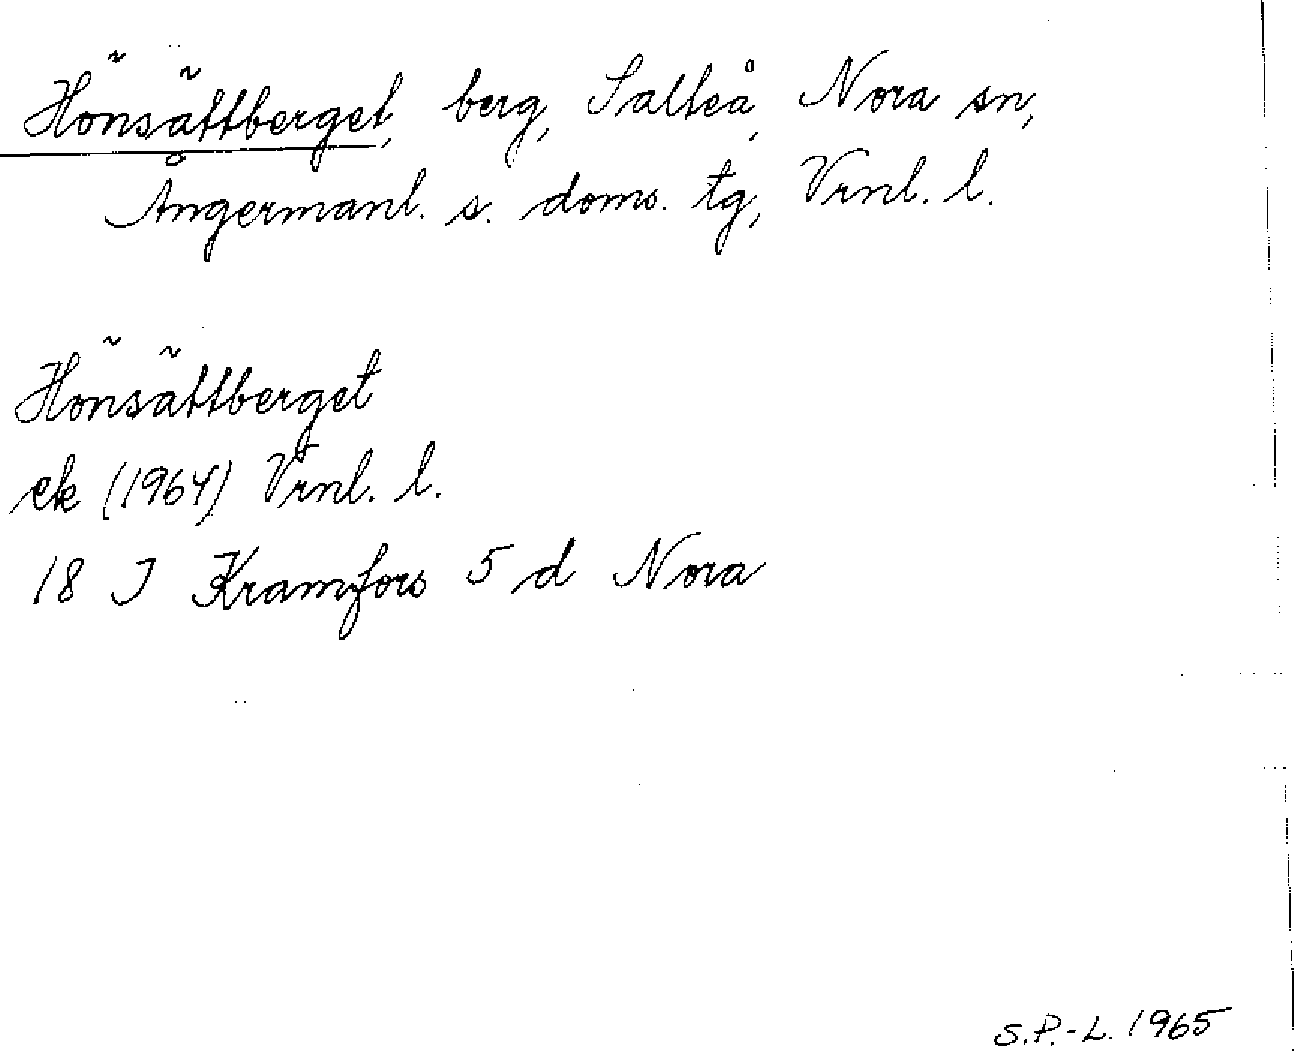 Hönsättberget, berg, Salteå, Nora sn,
Ångermanl. s. doms. tg, Vrnl. l.
Hönsättberget
ek (1964) Vrnl. l.
18 J Kramfors 5 d Nora
S.P.-L. 1965